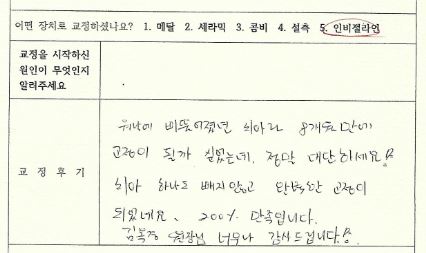 어떤 장치로 교정하셨나요? 1. 메탈 2. 세라믹 3. 콤비 4. 설측 5. 인비절라인
교정을 시작하신
원인이 무엇인지
알려주세요
교 정 후 기
워낙에 삐뚤어졌던 치아라 8개월만에
교정이 될까 싶었는데, 정말 대단하세요!
치아 하나도 빼지않고 완벽한 교정이
되었네요. 200% 만족입니다.
원장님 너무나 감사드립니다!